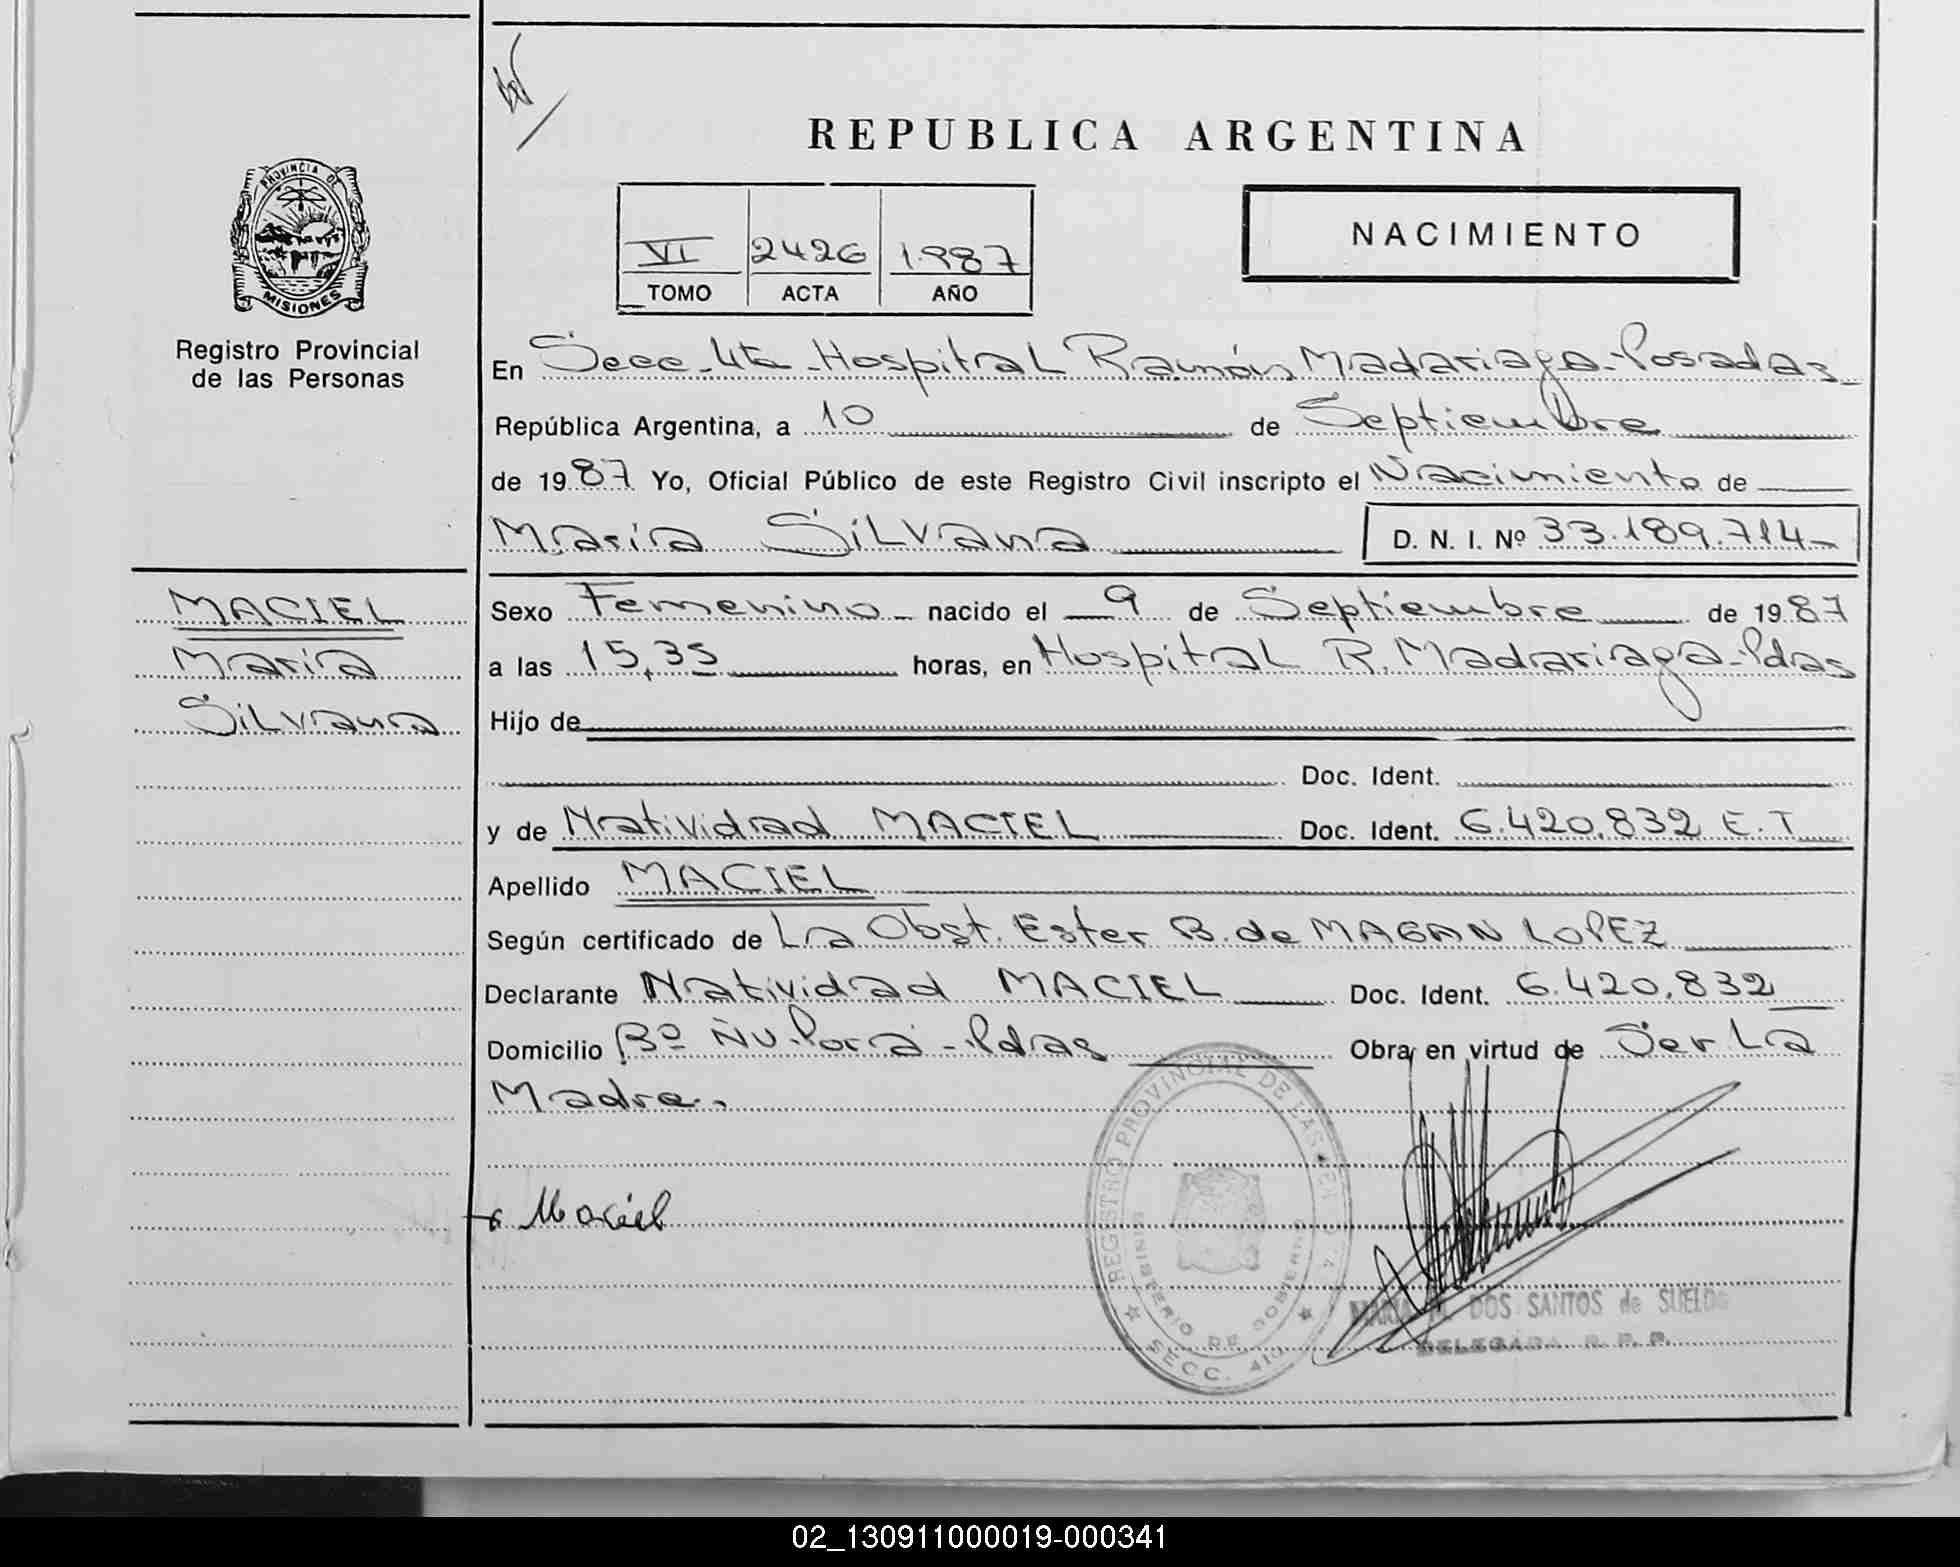 REPUBLICA ARGENTINA
PROVINCIA DE
MISIONES
Registro Provincial
de las Personas
VI 2426 1.987
TOMO ACTA AÑO
NACIMIENTO
En Secc. 4ta - Hospital Ramón Madariaga - Posadas -
República Argentina, a 10 de Septiembre
de 1987 Yo, Oficial Público de este Registro Civil inscripto el Nacimiento de
María Silvana D. N. I. Nº 33.189.714-
MACIEL
María
Silvana
Sexo Femenino - nacido el 9 de Septiembre de 1987
a las 15,35 horas, en Hospital R. Madariaga - Pdas
Hijo de
Doc. Ident.
y de Natividad MACIEL Doc. Ident. 6.420.832 E.T.
Apellido MACIEL
Según certificado de La Obst. Ester B. de MAGAN LOPEZ
Declarante Natividad MACIEL Doc. Ident. 6.420.832
Domicilio Bº Ñu Porá - Pdas Obra en virtud de Ser La
Madre.
Maciel
REGISTRO PROVINCIAL DE LAS PER
MINISTERIO DE GOBIERNO
SECC. 4
DOS SANTOS de SUELDO
DELEGADA R. P. P.
02_130911000019-000341